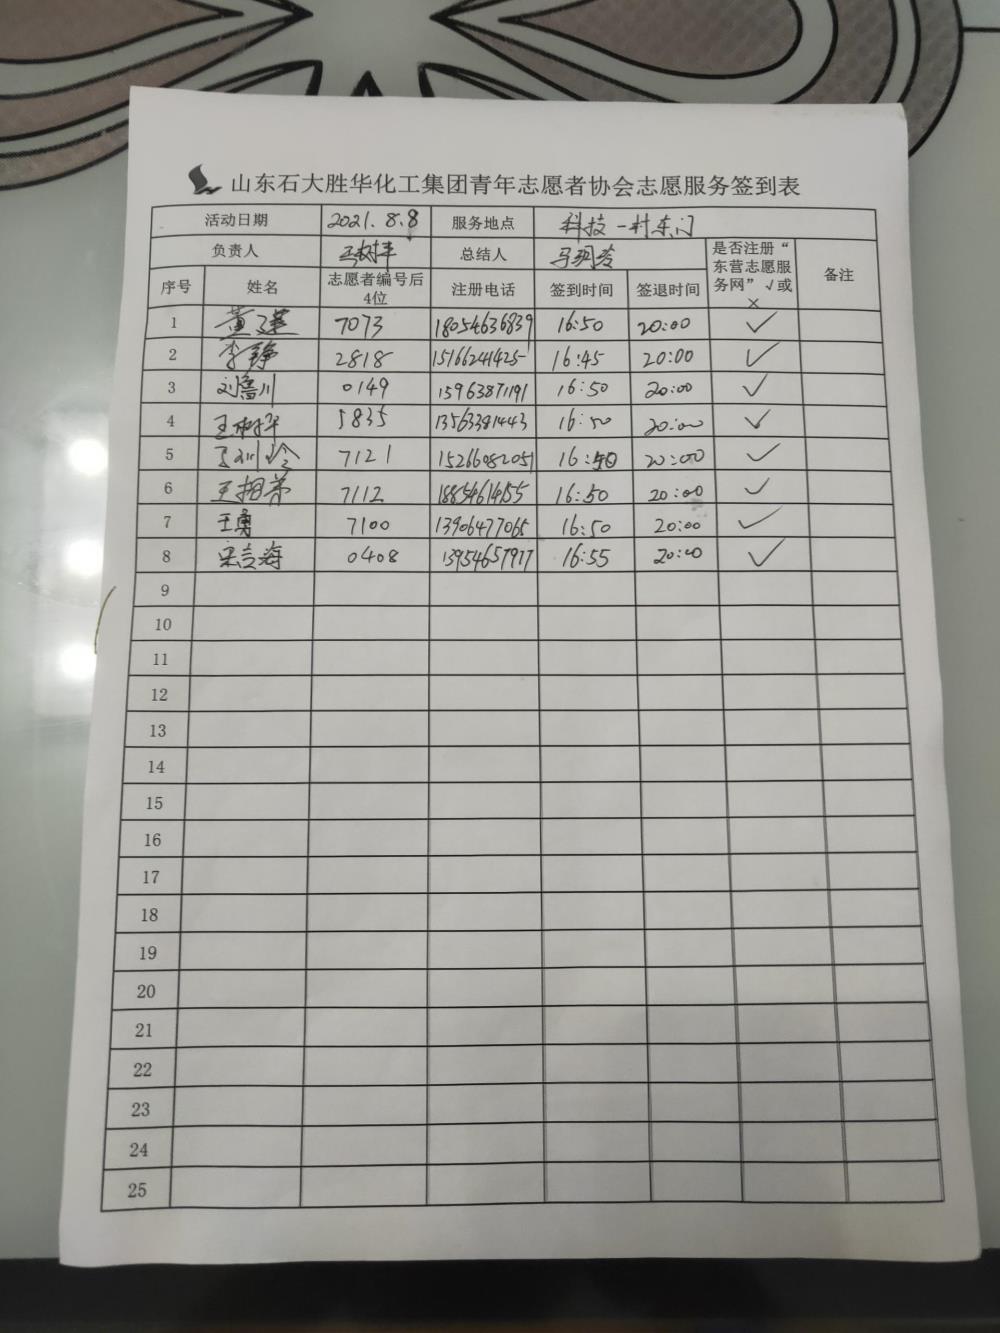 山东石大胜华化工集团青年志愿者协会志愿服务签到表
活动日期 2021.8.8 服务地点 科技一村东门
负责人 总结人 是否注册“东营志愿服务网”√或× 备注
序号 姓名 志愿者编号后4位 注册电话 签到时间 签退时间
1 7073 18054636839 16:50 20:00 √
2 李静 2818 15166241425 16:45 20:00 √
3 刘鲁川 0149 15963871191 16:50 20:00 √
4 王树华 5835 16:50 20:00 √
5 7121 15266082051 16:50 20:00 √
6 7112 18854614155 16:50 20:00 √
7 王勇 7100 13906477065 16:50 20:00 √
8 0408 13954657917 16:55 20:00 √
9
10
11
12
13
14
15
16
17
18
19
20
21
22
23
24
25